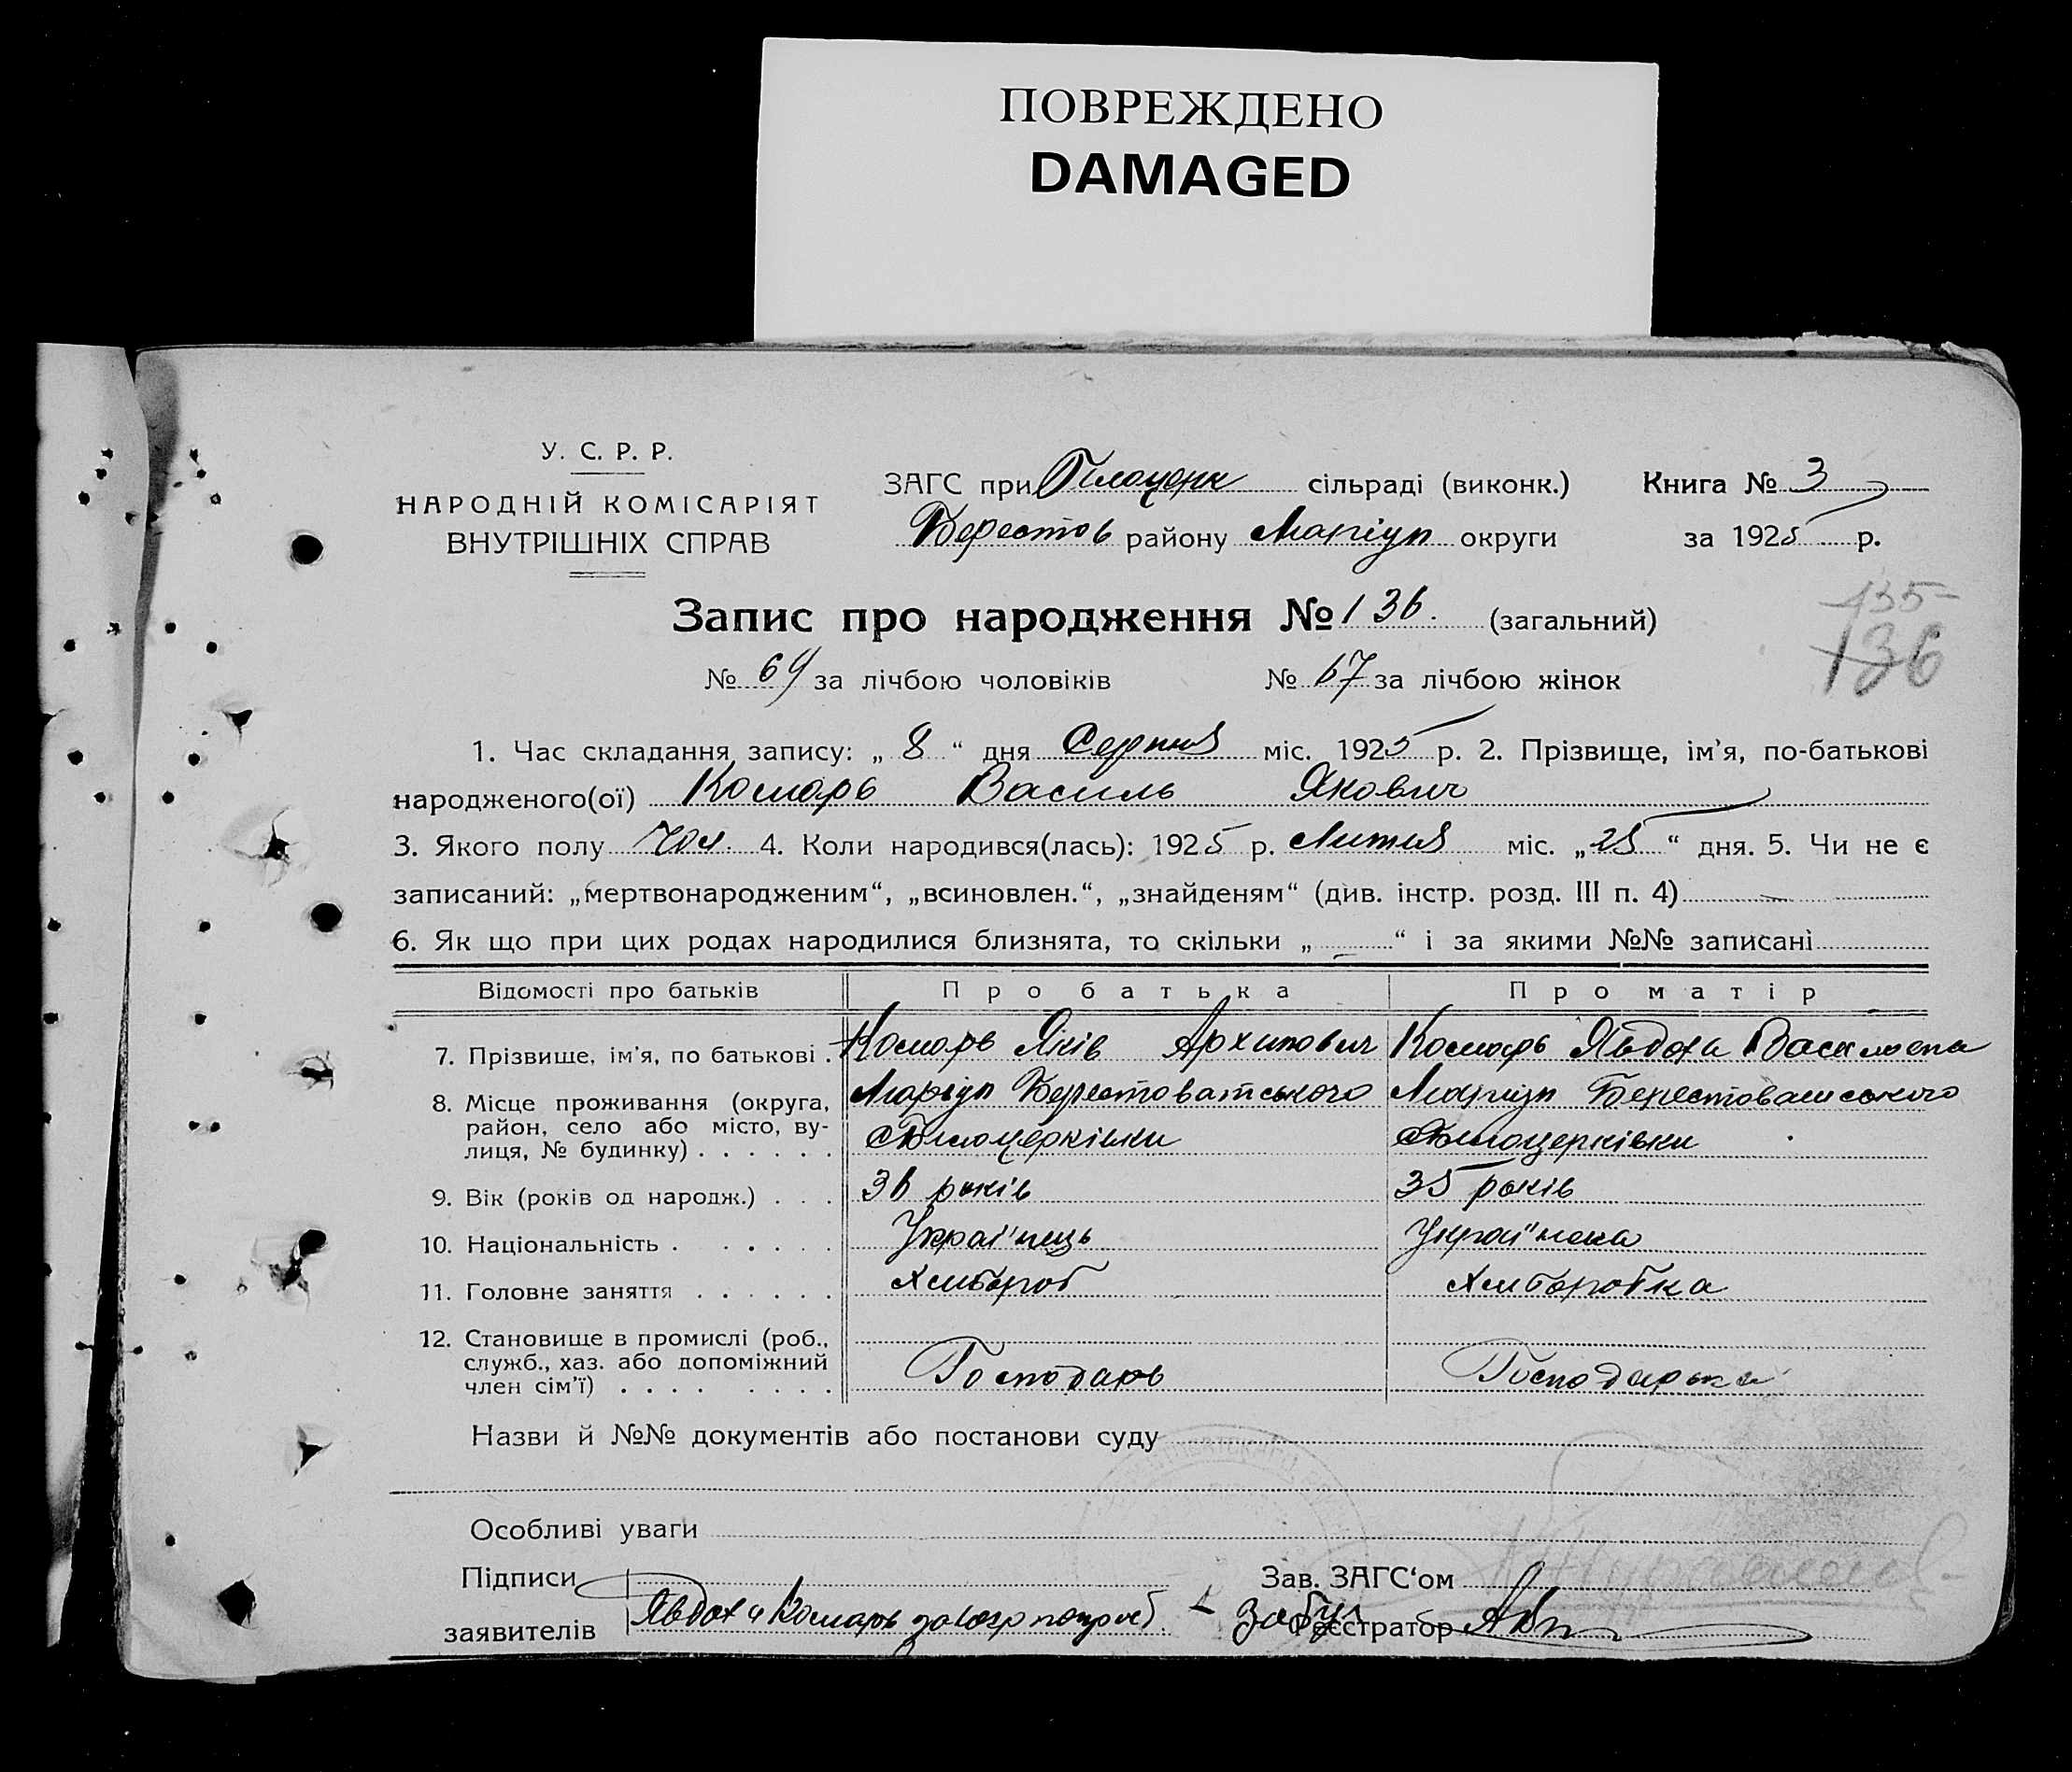 ПОВРЕЖДЕНО
DAMAGED
У. С. Р. Р.
НАРОДНІЙ КОМІСАРІЯТ
ВНУТРІШНІХ СПРАВ
ЗАГС при Білоцерк сільраді (виконк.)
Берестов району Маріуп округи
Книга № 3
за 1925 р.
Запис про народження № 136. (загальний)
135
136
№ 69 за лічбою чоловіків № 67 за лічбою жінок
1. Час складання запису: „ 8 “ дня Серпня міс. 1925 р. 2. Прізвище, ім’я, по-батькові
народженого(ої) Комарь Василь Якович
3. Якого полу чол. 4. Коли народився(лась): 1925 р. Липня міс. „ 25 “ дня. 5. Чи не є
записаний: „мертвонародженим“, „всиновлен.“, „знайденям“ (див. інстр. розд. III п. 4)
6. Як що при цих родах народилися близнята, то скільки „ “ і за якими №№ записані
Відомості про батьків Про батька Про матір
7. Прізвище, ім’я, по батькові . Комарь Яків Архипович Комарь Явдоха Василовна
8. Місце проживання (округа, Маріуп Берестоватського Маріуп Берестоватського
район, село або місто, ву-
лиця, № будинку) . . . . . . Білоцерківки Білоцерківки
9. Вік (років од народж.) . . . 36 років 35 років
10. Національність . . . . . . Украї'нець Украї'нка
11. Головне заняття . . . . . . Хлібороб Хліборобка
12. Становище в промислі (роб.,
служб., хаз. або допоміжний
член сім’ї) . . . . . . . . Господарь Господарька
Назви й №№ документів або постанови суду
Особливі уваги
Підписи
заявителів Явдоха Комарь
Зав. ЗАГС‘ом
Реєстратор